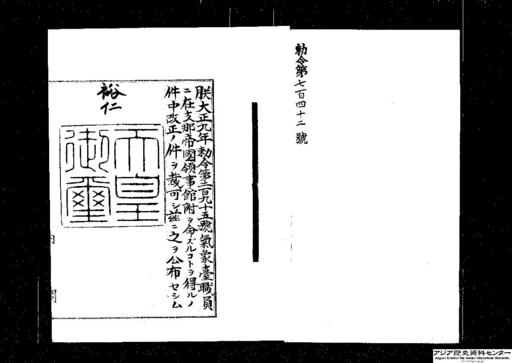 勅令第七百四十二號
朕大正九年勅令第二百九十五號氣象臺職員
ニ在支那帝國領事館附ヲ命ズルコトヲ得ルノ
件中改正ノ件ヲ裁可シ茲ニ之ヲ公布セシム
裕仁
天皇
御璽
アジア歴史資料センター
Japan Center for Asian Historical Records